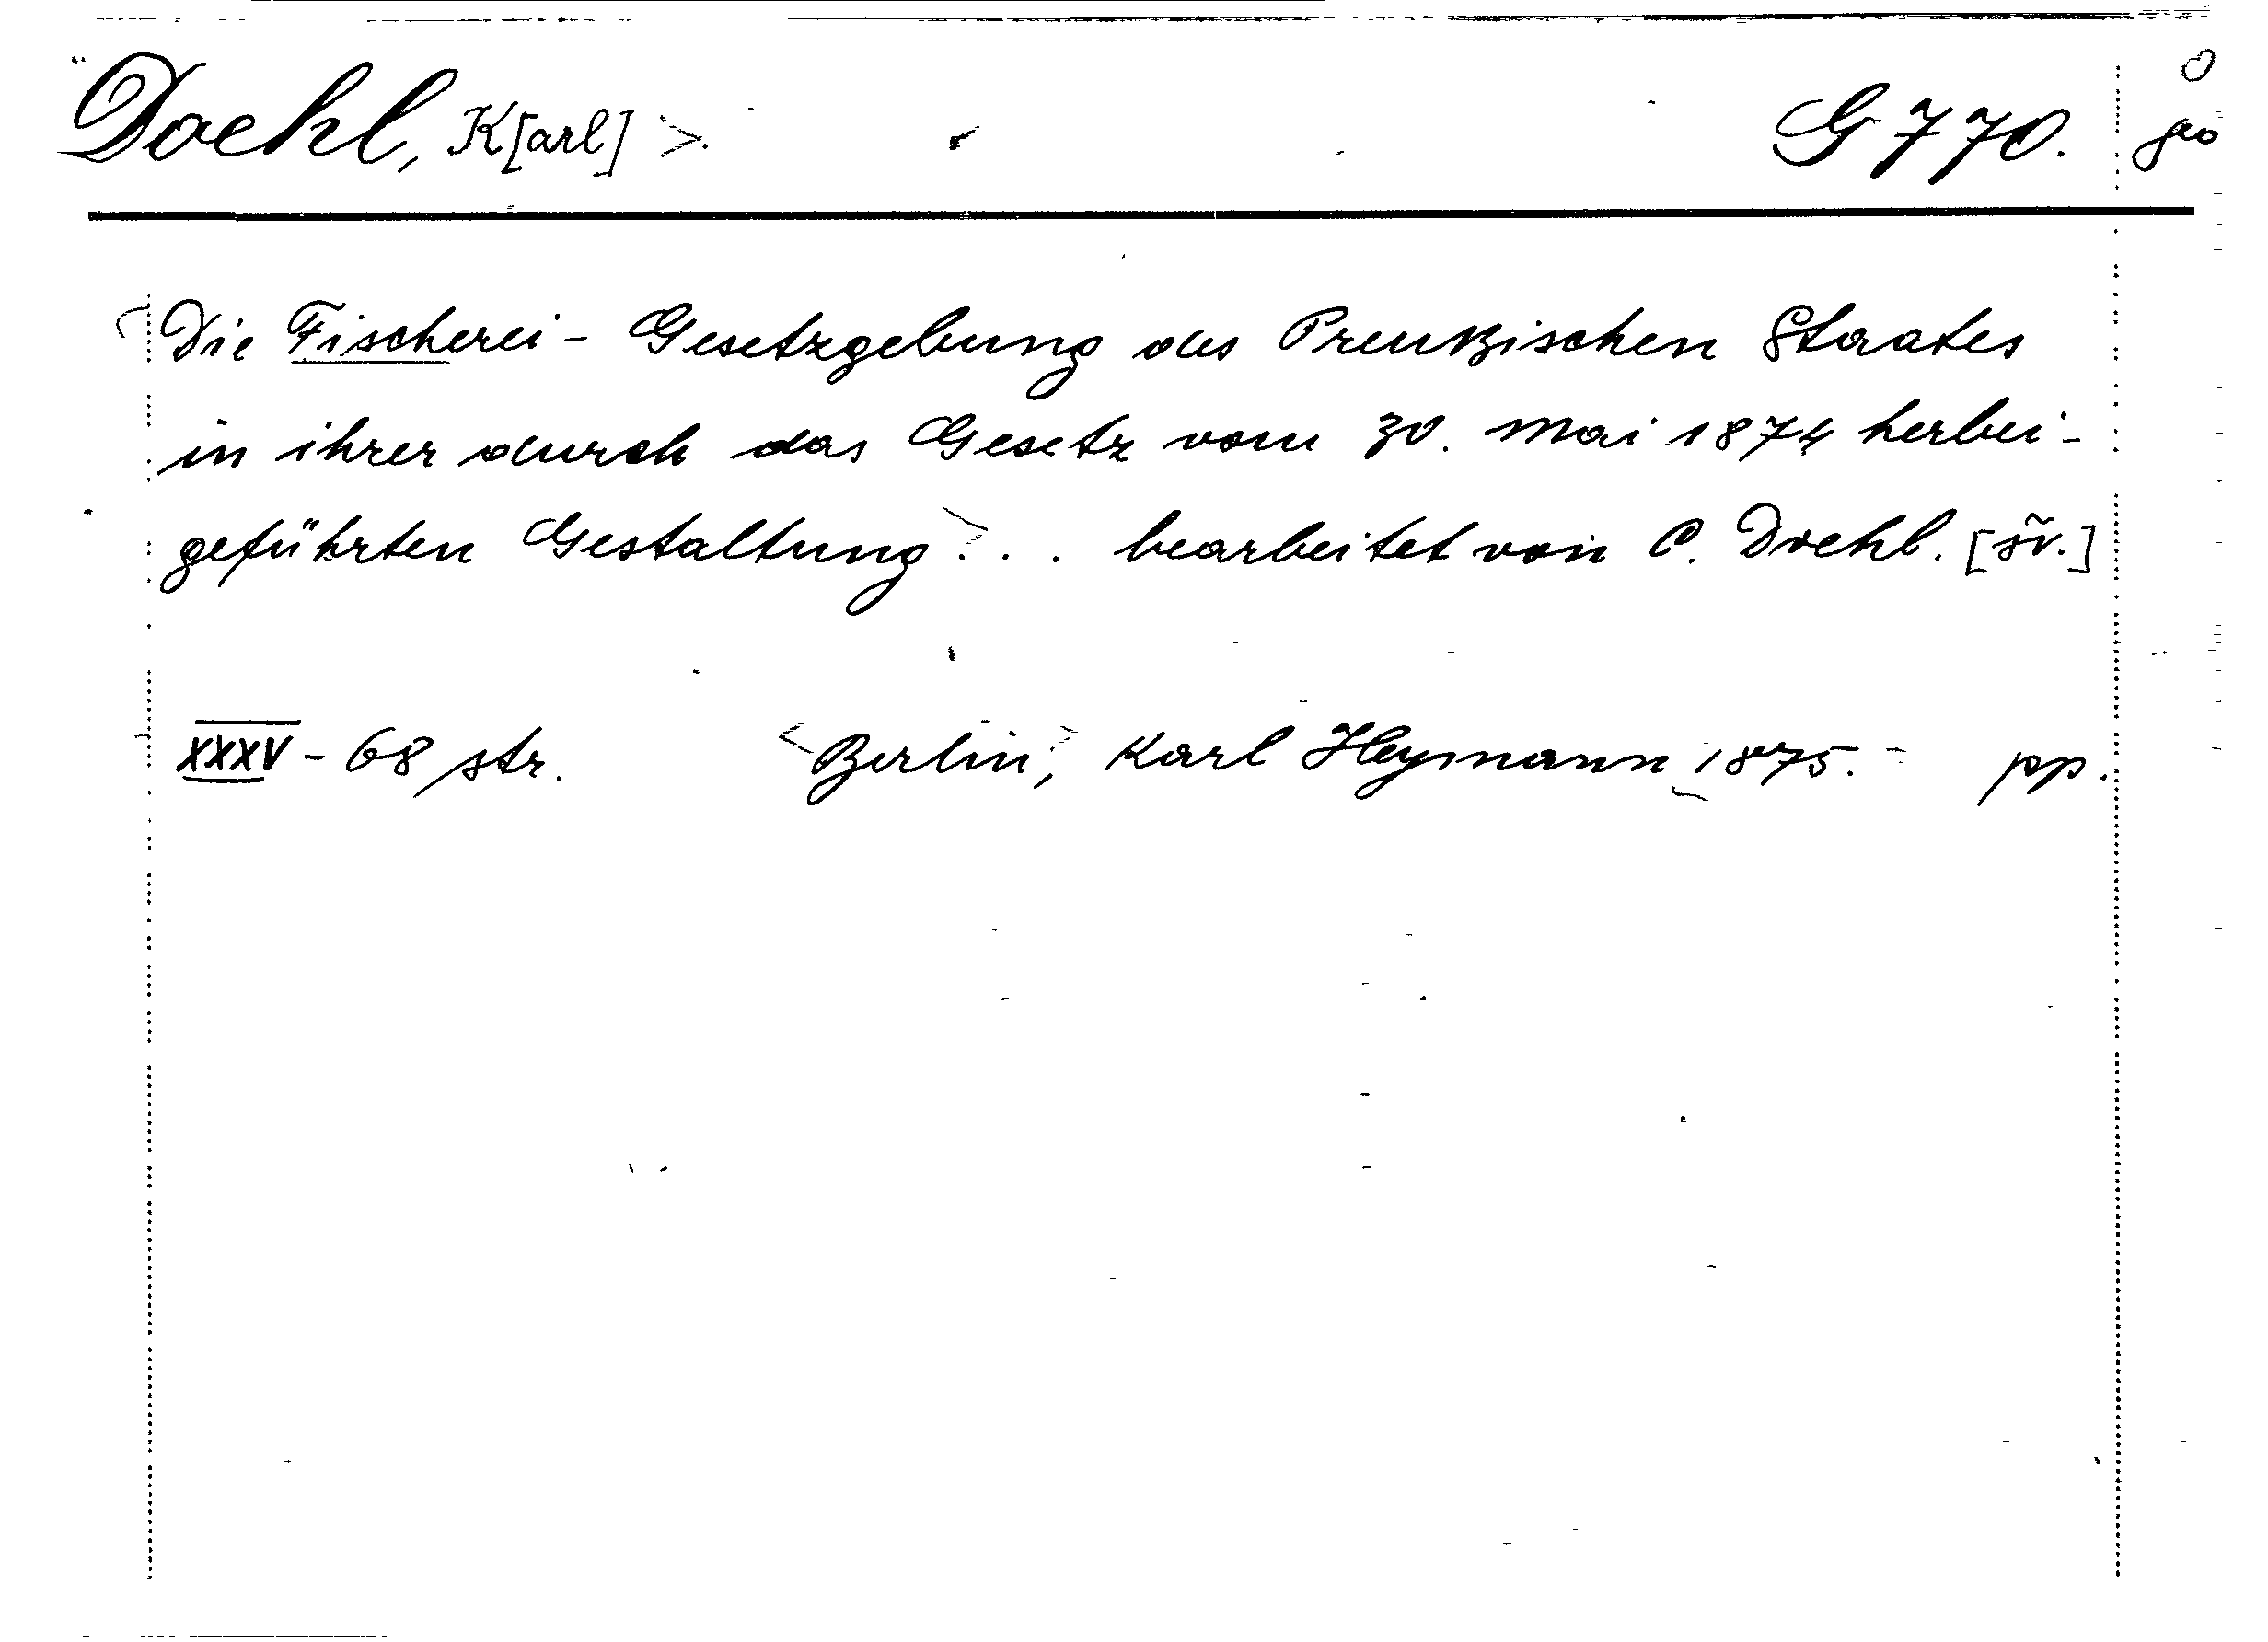 Doehl, K[arl] > G 770.
Die Fischerei - Gesetzgebung des Preußischen Staates
in ihrer durch das Gesetz vom 30. Mai 1874 herbei-
geführten Gestaltung > . . . bearbeitet von C. Doehl. [šv.]
XXXV - 68 str. <Berlin,> Karl Heymann 1875. - pp.